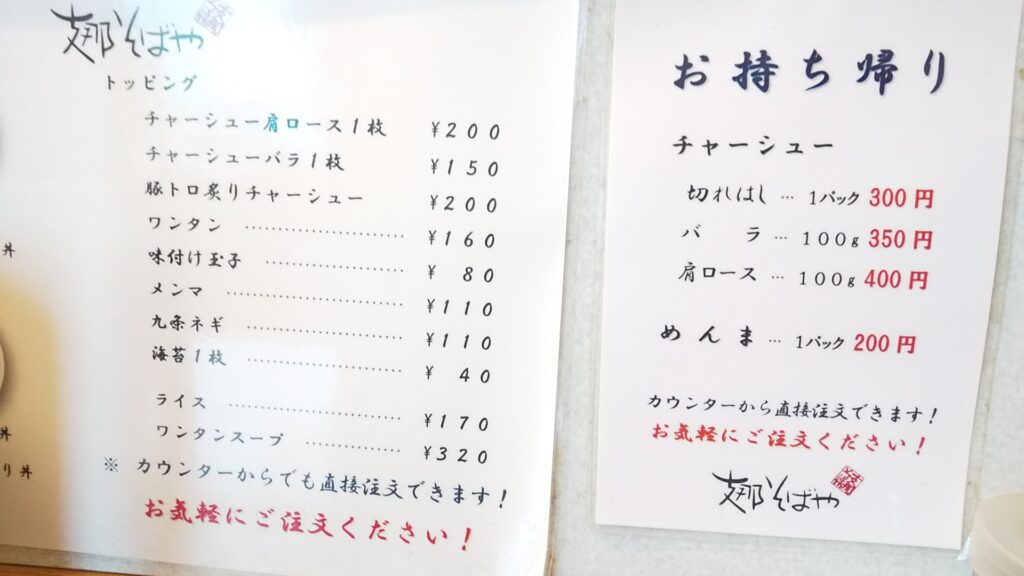 支那そばや
トッピング
チャーシュー肩ロース1枚 ¥200
チャーシューバラ1枚 ¥150
豚トロ炙りチャーシュー ¥200
ワンタン ………………… ¥160
味付け玉子 ……………… ¥ 80
メンマ …………………… ¥110
九条ネギ ………………… ¥110
海苔1枚 ………………… ¥ 40
ライス …………………… ¥170
ワンタンスープ ………… ¥320
※ カウンターからでも直接注文できます!
お気軽にご注文ください!
丼
丼
り丼
お持ち帰り
チャーシュー
切れはし … 1パック 300円
バラ … 100g 350円
肩ロース … 100g 400円
めんま … 1パック 200円
カウンターから直接注文できます!
お気軽にご注文ください!
支那そばや